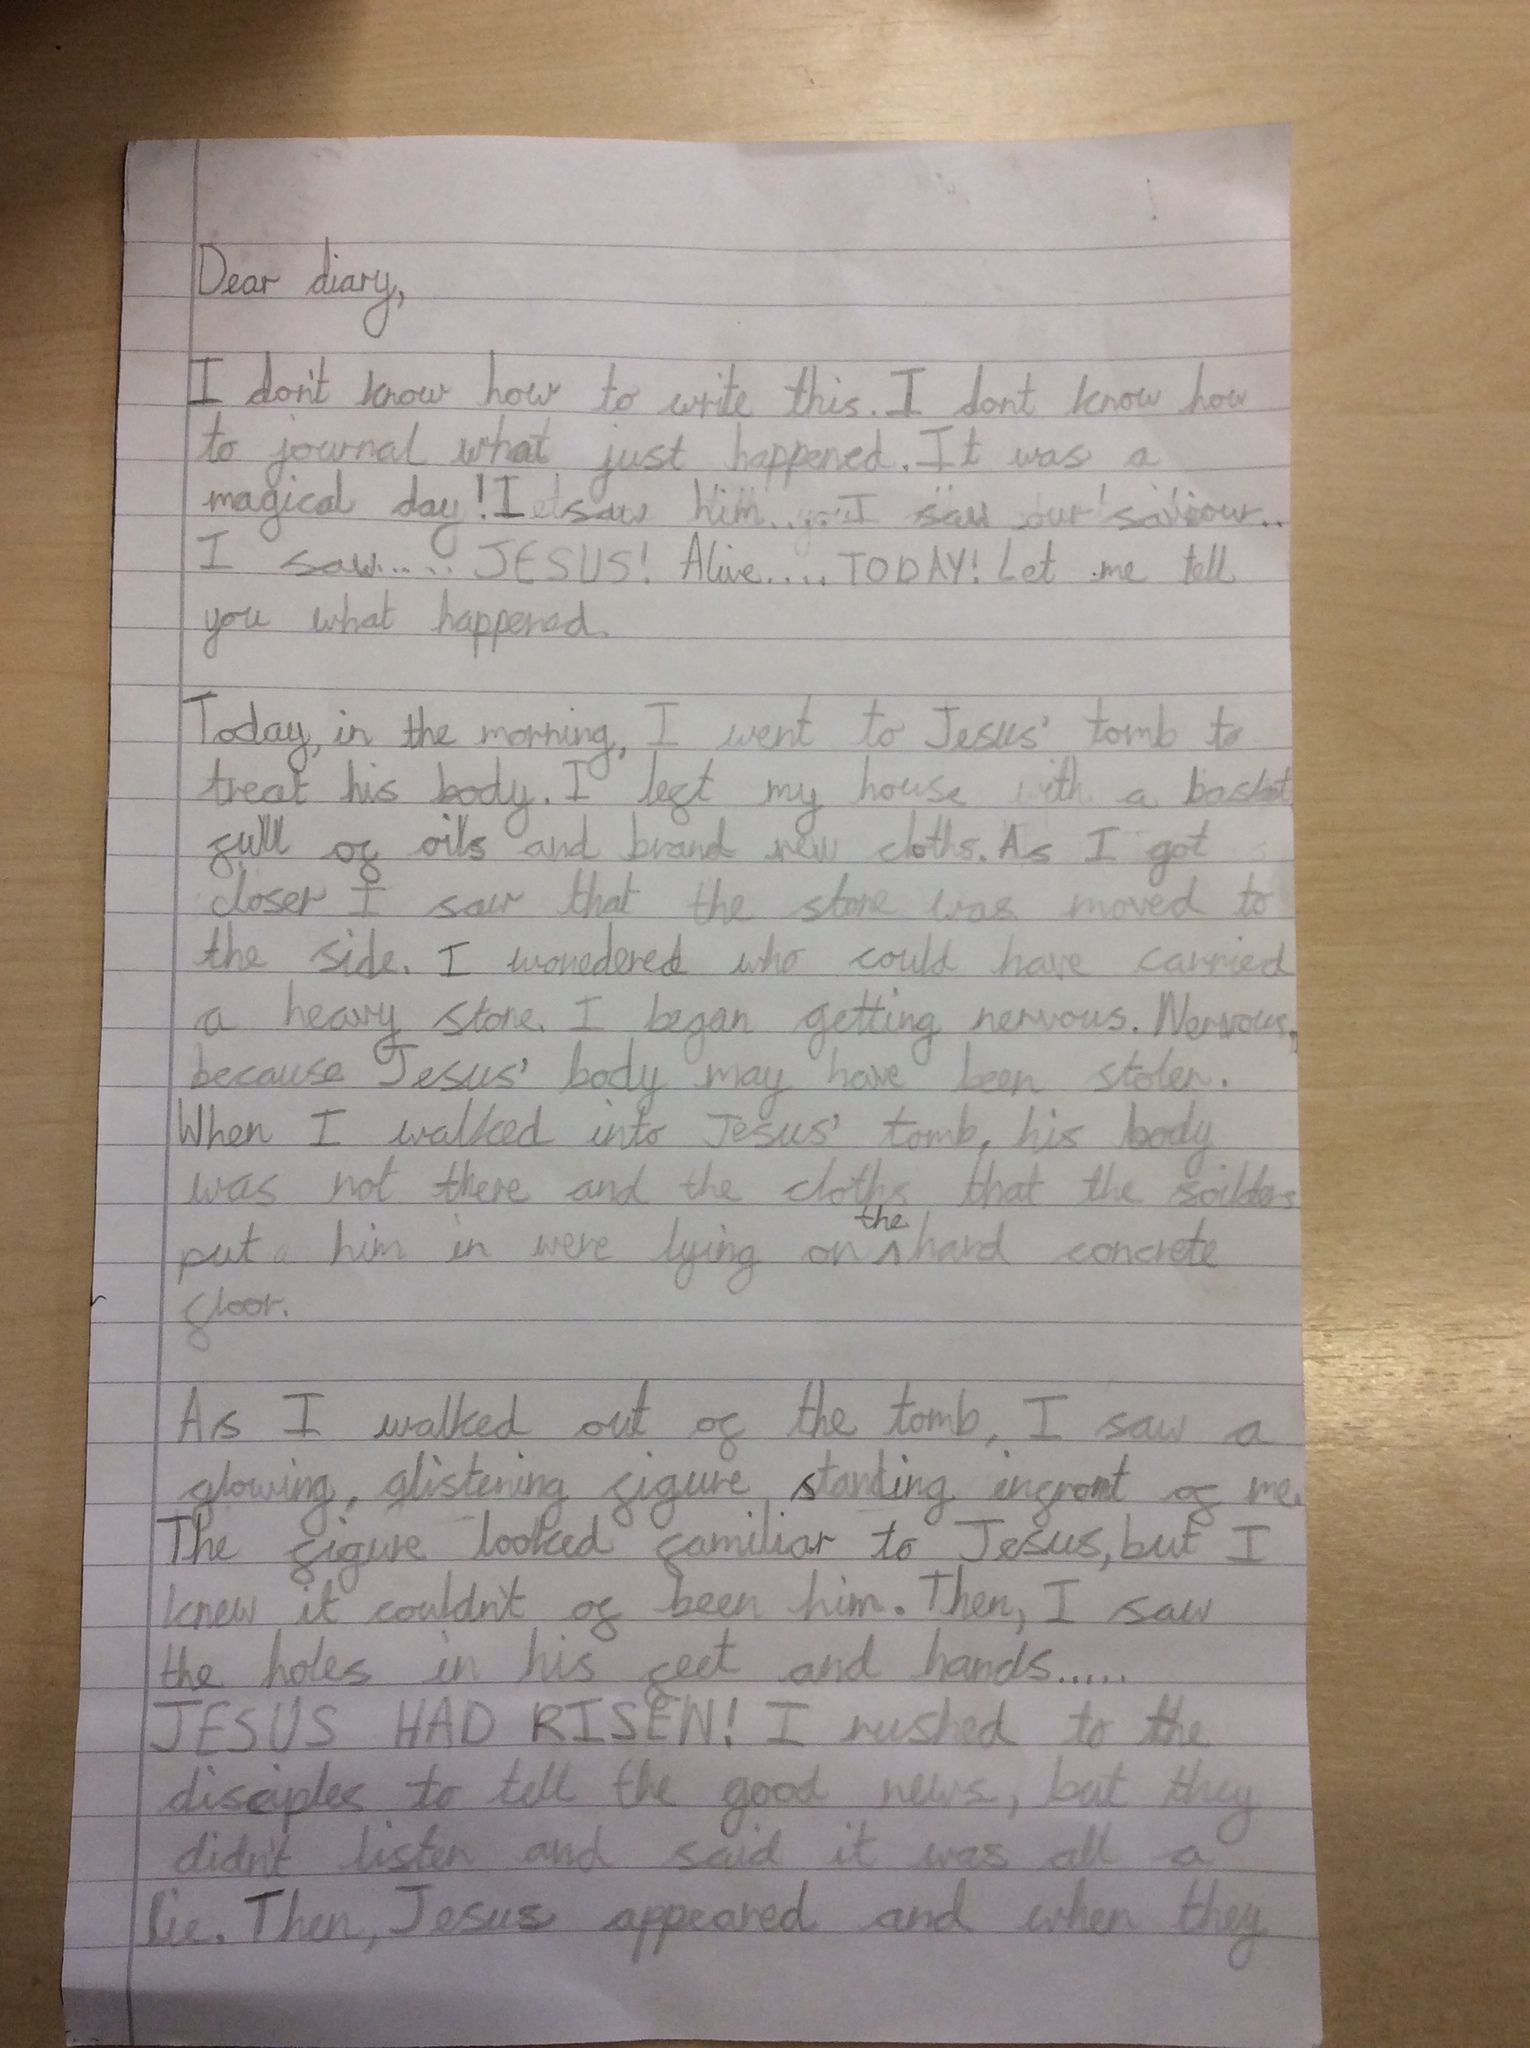 Dear diary,
I don't know how to write this. I dont know how
to journal what just happened. It was a
magical day! I saw him..... I saw our saviour..
I saw..... JESUS! Alive.... TODAY! Let me tell
you what happened.
Today, in the morning, I went to Jesus' tomb to
treat his body. I left my house with a basket
full of oils and brand new cloths. As I got
closer I saw that the stone was moved to
the side. I wonedered who could have carried
a heavy stone. I began getting nervous. Nervous,
because Jesus' body may have been stolen.
When I walked into Jesus' tomb, his body
was not there and the cloths that the soilders
put him in were lying on the hard concrete
floor.
As I walked out of the tomb, I saw a
glowing, glistening figure standing infront of me.
The figure looked familiar to Jesus, but I
knew it couldn't of been him. Then, I saw
the holes in his feet and hands.....
JESUS HAD RISEN! I rushed to the
disciples to tell the good news, but they
didn't listen and said it was all a
lie. Then, Jesus appeared and when they